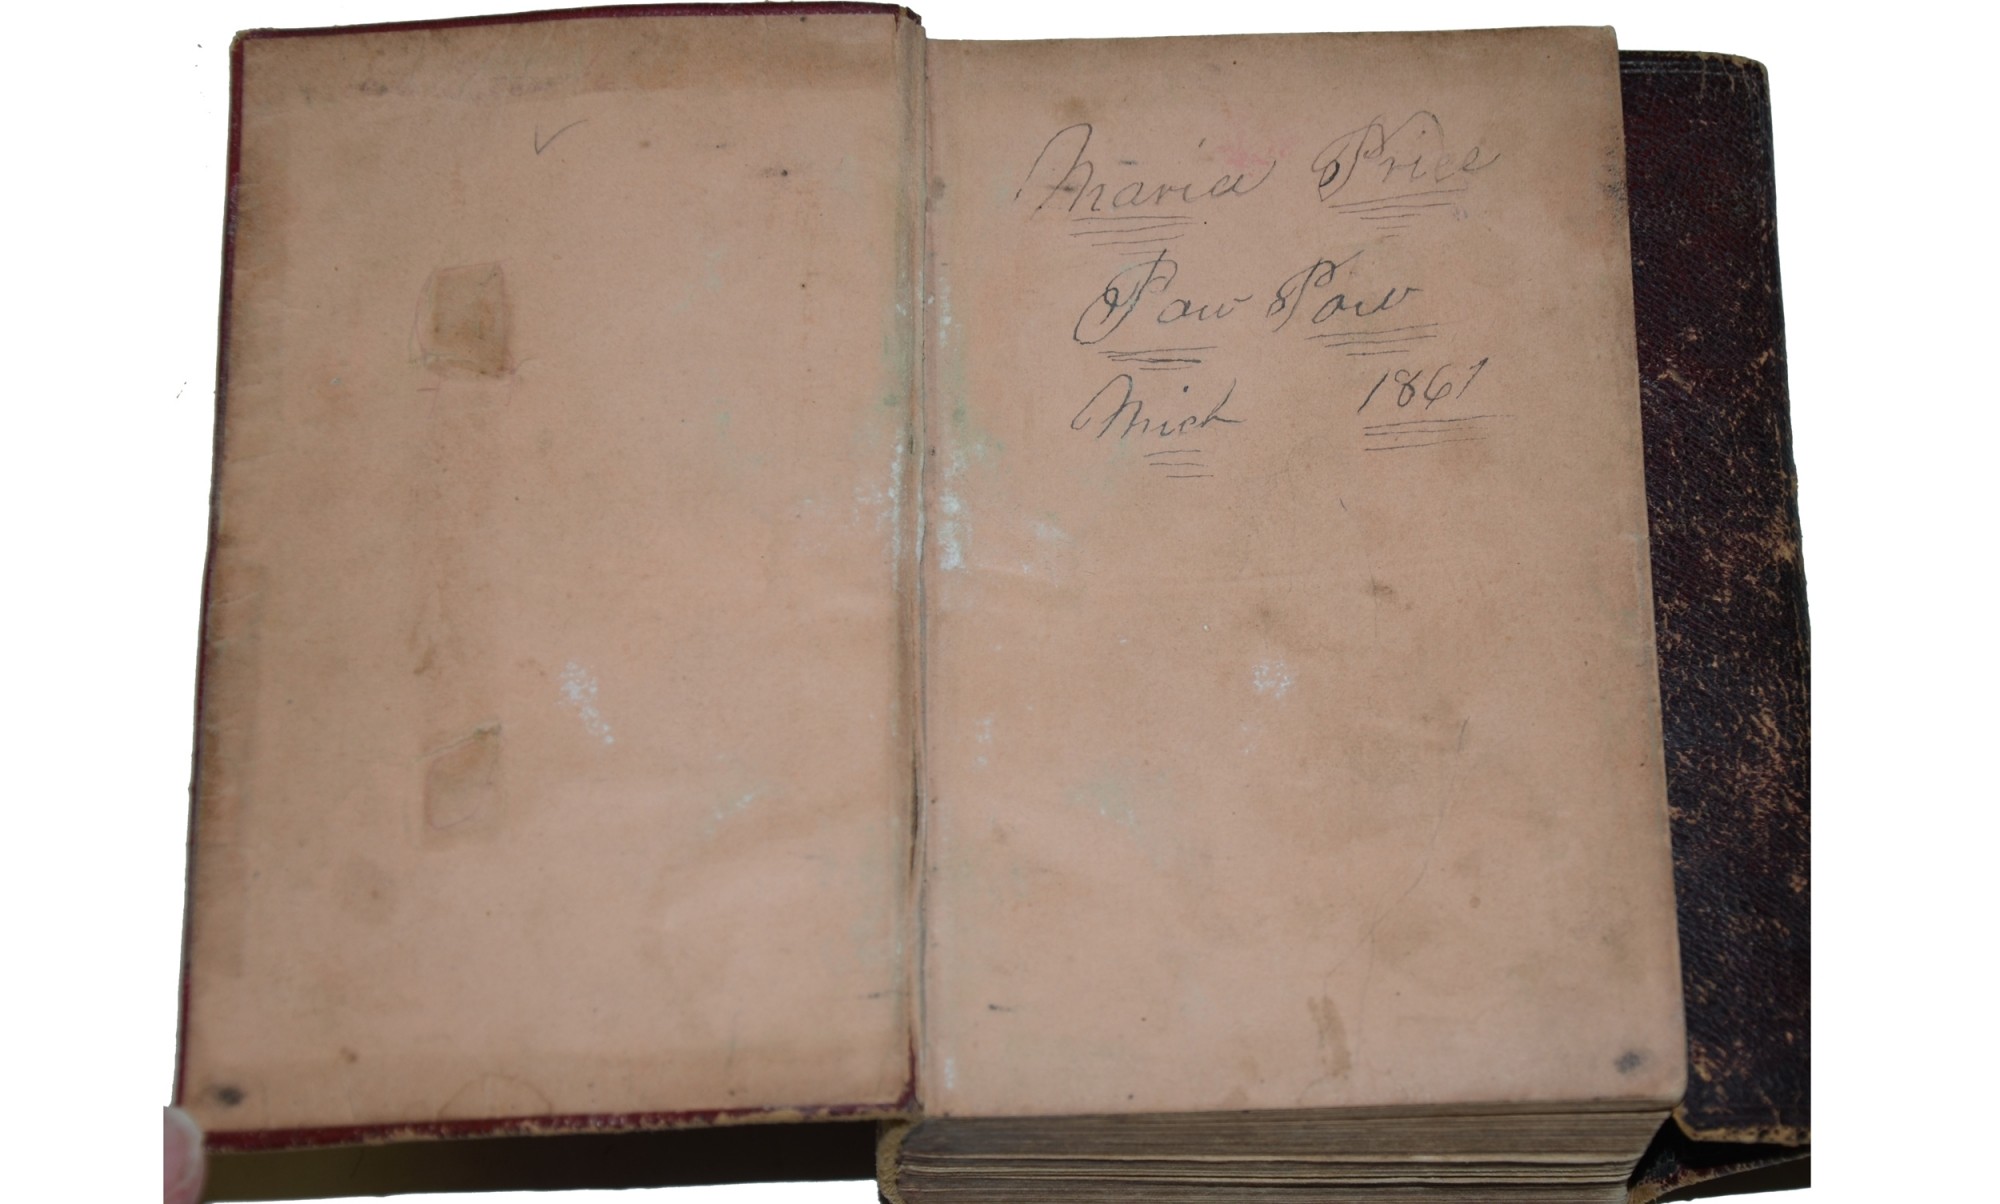 Maria Price
Paw Paw
Mich 1861